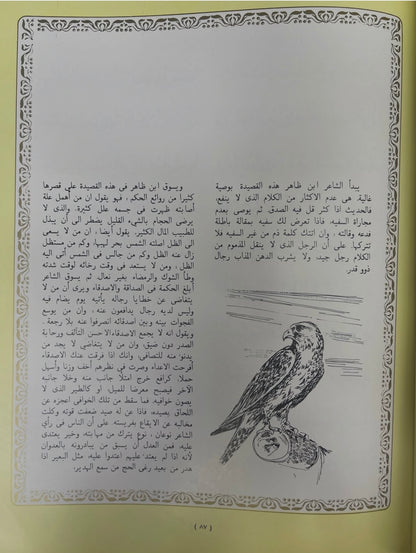 يبدأ الشاعر ابن ظاهر هذه القصيدة بوصية
غالية، هى عدم الاكثار من الكلام الذى لا ينفع،
فالحديث اذا كثر قل فيه الصدق، ثم يوصى بعدم
مجاراة السفيه، فاذا تعرض لك سفيه بمقالة باطلة
فدعه وقالته. وان اتتك كلمة ذم من غير السفيه فلا
تتركها. على أن الرجل الذى لا ينقل المذموم من
الكلام رجل جيد. ولا يشرب الدهن المذاب رجال
ذوو قدر.
ويسوق ابن ظاهر فى هذه القصيدة على قصرها
كثيرا من روائع الحكم، فهو يقول ان من أهمل علة
أصابته ظهرت فى جسمه علل كثيرة. والذى لا
يرضى الحجام بالشىء القليل يضطر الى أن يبذل
للطبيب المال الكثير. يقول أيضا، ان من لا يسعى
الى الظل اصلته الشمس بحر لهيبها. وكم من مستظل
زال عنه الظل وكم من جالس فى الشمس أتى اليه
الظل، ومن لا يستعد فى وقت رخائه لوقت شدته
وطأ الشوك والرمضاء بغير نعال. ثم يسوق الشاعر
أبلغ الحكمة فى الصداقة والاصدقاء ويرى أن من لا
يتغاضى عن خطايا رجاله يأتيه يوم يضام فيه
وليس لديه رجال يدافعون عنه، وان من يوسع
الفجوات بينه وبين أصدقائه انصرفوا عنه بلا رجعة.
ويقول انه لا يجمع الاصدقاء الا حسن التآلف ورحابة
الصدر دون ضيق، وان من لا يتغاضى لا يجد من
يدنو منه للتصافى. وانك اذا فرقت عنك الاصدقاء
أفرحت الاعداء وصرت فى نظرهم أخف وزنا وأسهل
حملا. كرافع خرج امتلأ جانب منه وخلا جانبه
الآخر فيصبح معرضا للميل. او كالطير الذى لا
يصون خوافيه. فما سقط من تلك الخوافى اعجزه عن
اللحاق بصيده. فاذا عن له صيد ضعفت قوته وكلت
مخالبه عن الايقاع بفريسته. على أن الناس فى رأى
الشاعر نوعان، نوع يترك من مهابته، وخير يعتدى
عليه. فمن العدل أن يسبق من يبادرونه بالعدوان
لأنه اذا لم يعتد عليهم اعتدوا عليه. مثل البعير اذا
هدر من بعيد رغى الحج من سمع الهدير.
( ٨٧ )